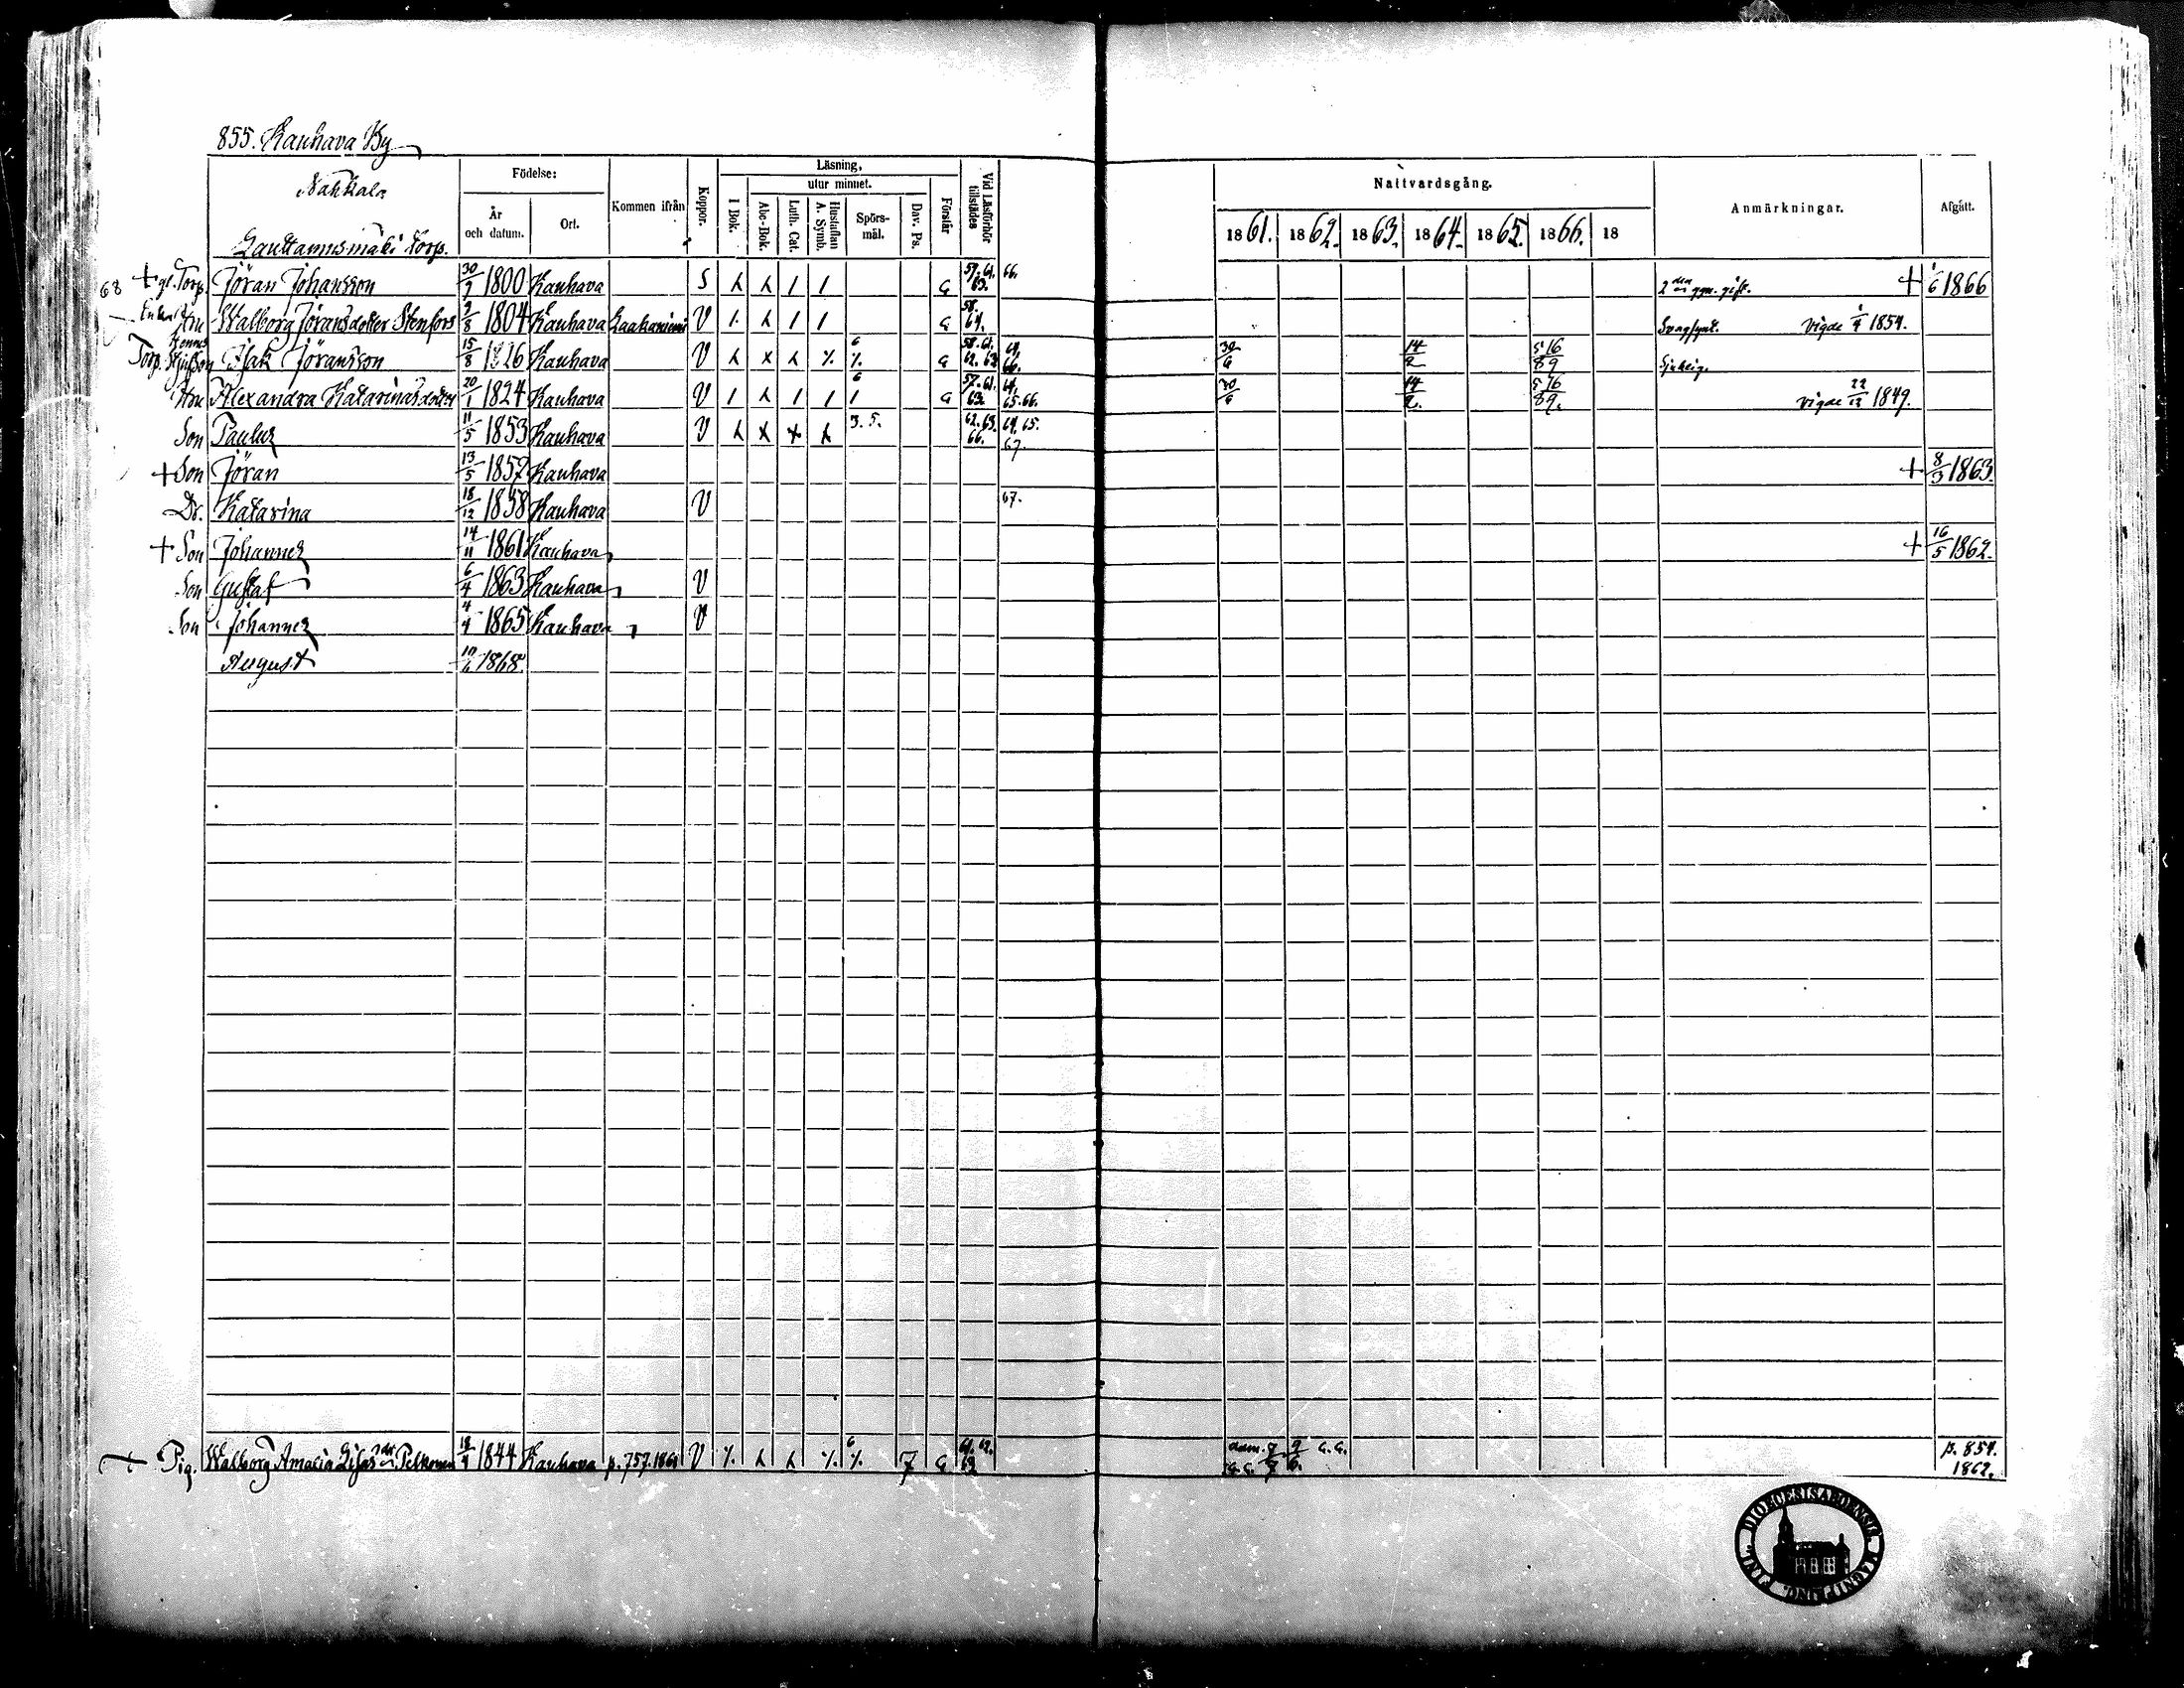 855. Kauhava By
Nahkala
Födelse:
Läsning,
utur minnet.
År och datum.
Ort.
Kommen ifrån
Koppor.
I Bok.
Abc-Bok.
Luth. Cat.
Hustaflan A. Symb.
Spörsmål.
Dav. Ps.
Förstår
Vid Läsförhör tillstädes
Nattvardsgång.
1861. 1862. 1863. 1864. 1865. 1866. 18
Anmärkningar.
Afgått.
Lauttamusmäki Torp.
68 + gl. Torp. Jöran Johansson 30/7 1800 Kauhava S 57. 61. 63. 66. 2den ggn. gift. + 1/6 1866
Enka Hu Walborg Jöransdotter Stenfors 9/8 1804 Kauhava Kaakaniemi V 58. 64. Svagsynt. Vigde 1/4 1854.
Torp. Isak Jöransson 15/8 1826 Kauhava V 58. 61. 62. 63. 64. 66. 30/6 14/2 5 16/89 Sjuklig.
Hu Alexandra Katarinasdotter 20/1 1824 Kauhava V 57. 61. 63. 64. 65. 66. 30/6 14/2. 5 16/89. Vigde 22/12 1849.
Son Paulus 11/5 1853 Kauhava V 3. 5. 62. 63. 66. 64. 65. 67.
+ Son Jöran 13/5 1857 Kauhava + 8/3 1863.
Dr. Katarina 18/12 1858 Kauhava V 67.
+ Son Johannes 14/11 1861 Kauhava + 16/5 1862.
Son Gustaf 6/4 1863 Kauhava V
Son Johannes 4/4 1865 Kauhava V
August 10/6 1868
+ Pig. Walborg Amalia Lisasdr Pelkonen 18/4 1844 Kauhava p. 757. 1861 V 61. 62. 63 p. 854. 1862.
DIOECESIS ABOENSIS MAGNI DUC. FINL.